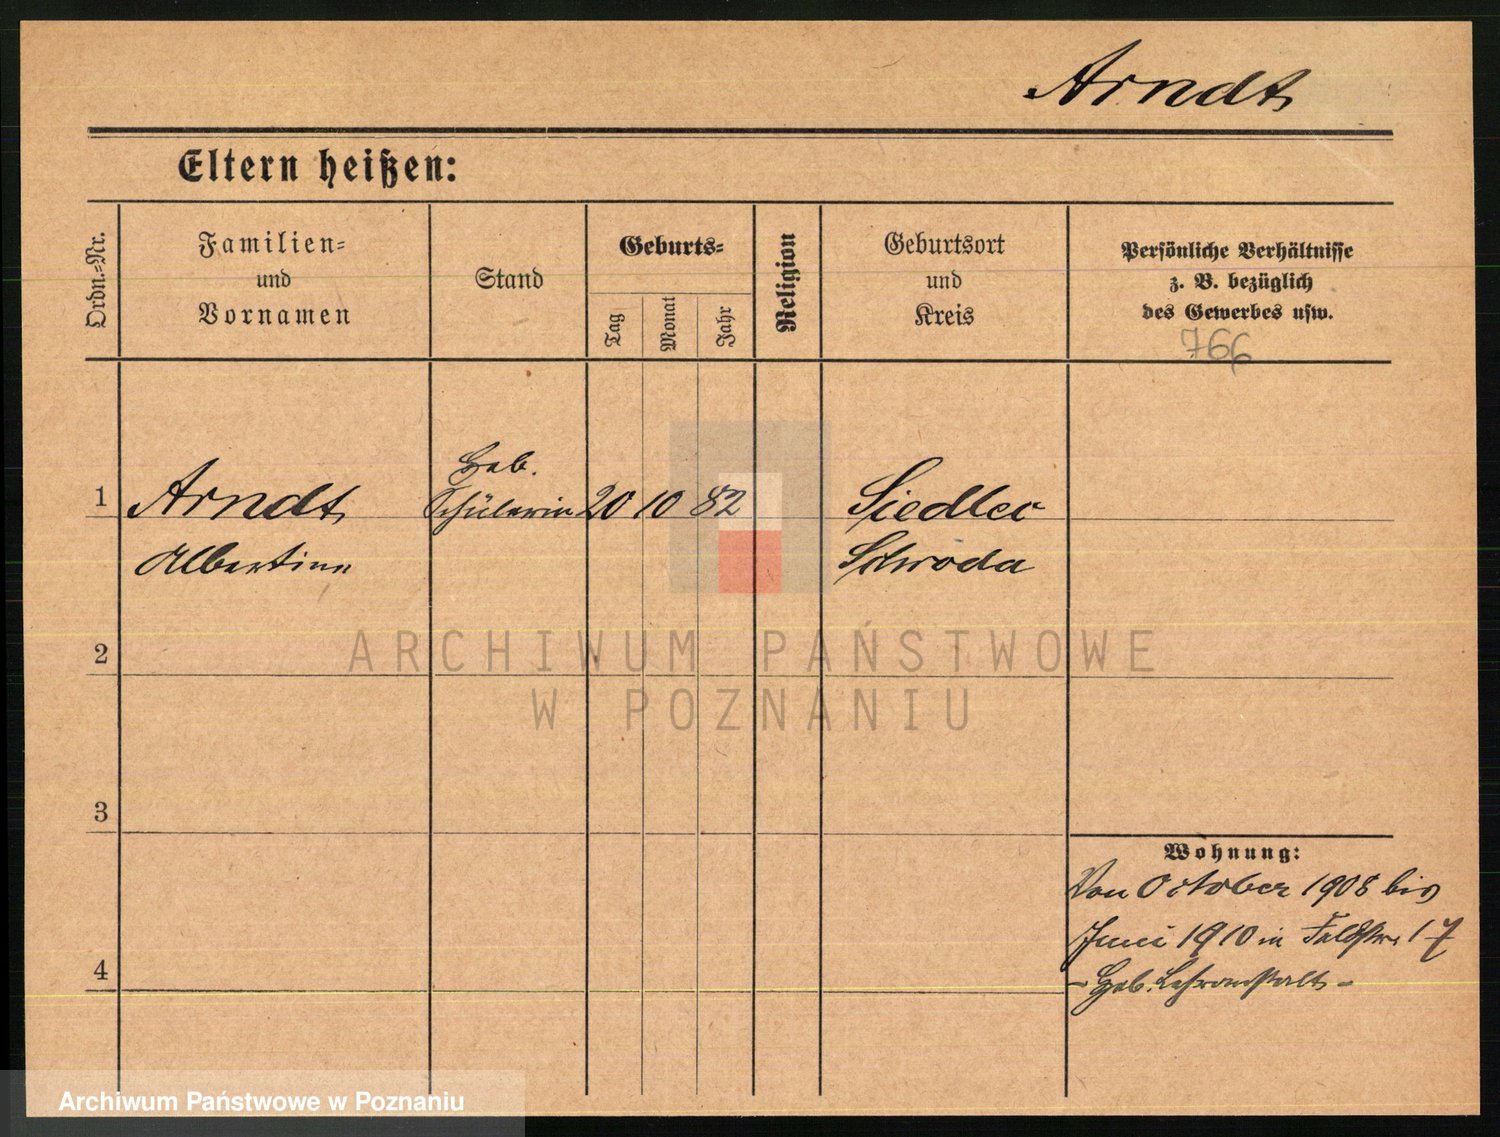 Arndt
Eltern heißen:
Ordn.=Nr.
Familien=
und
Vornamen
Stand
Geburts=
Tag
Monat
Jahr
Religion
Geburtsort
und
Kreis
Persönliche Verhältnisse
z. B. bezüglich
des Gewerbes usw.
766
1
Arndt
Albertine
Heb.
Schülerin
20 10 82
Siedlec
Schroda
2
3
4
Wohnung:
Von October 1908 bis
Juni 1910 in Feldstr. 17
- Heb. Lehranstalt -
ARCHIWUM PAŃSTWOWE
W POZNANIU
Archiwum Państwowe w Poznaniu